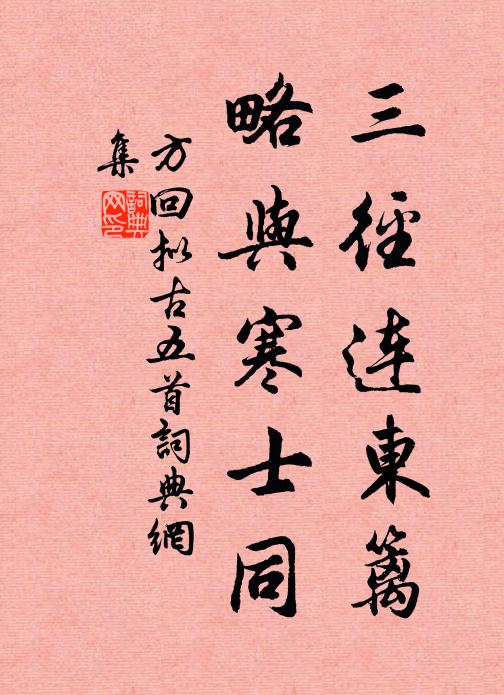 三徑連東籬
略與寒士同
方回拟古五首詞典網
集
詞典网印